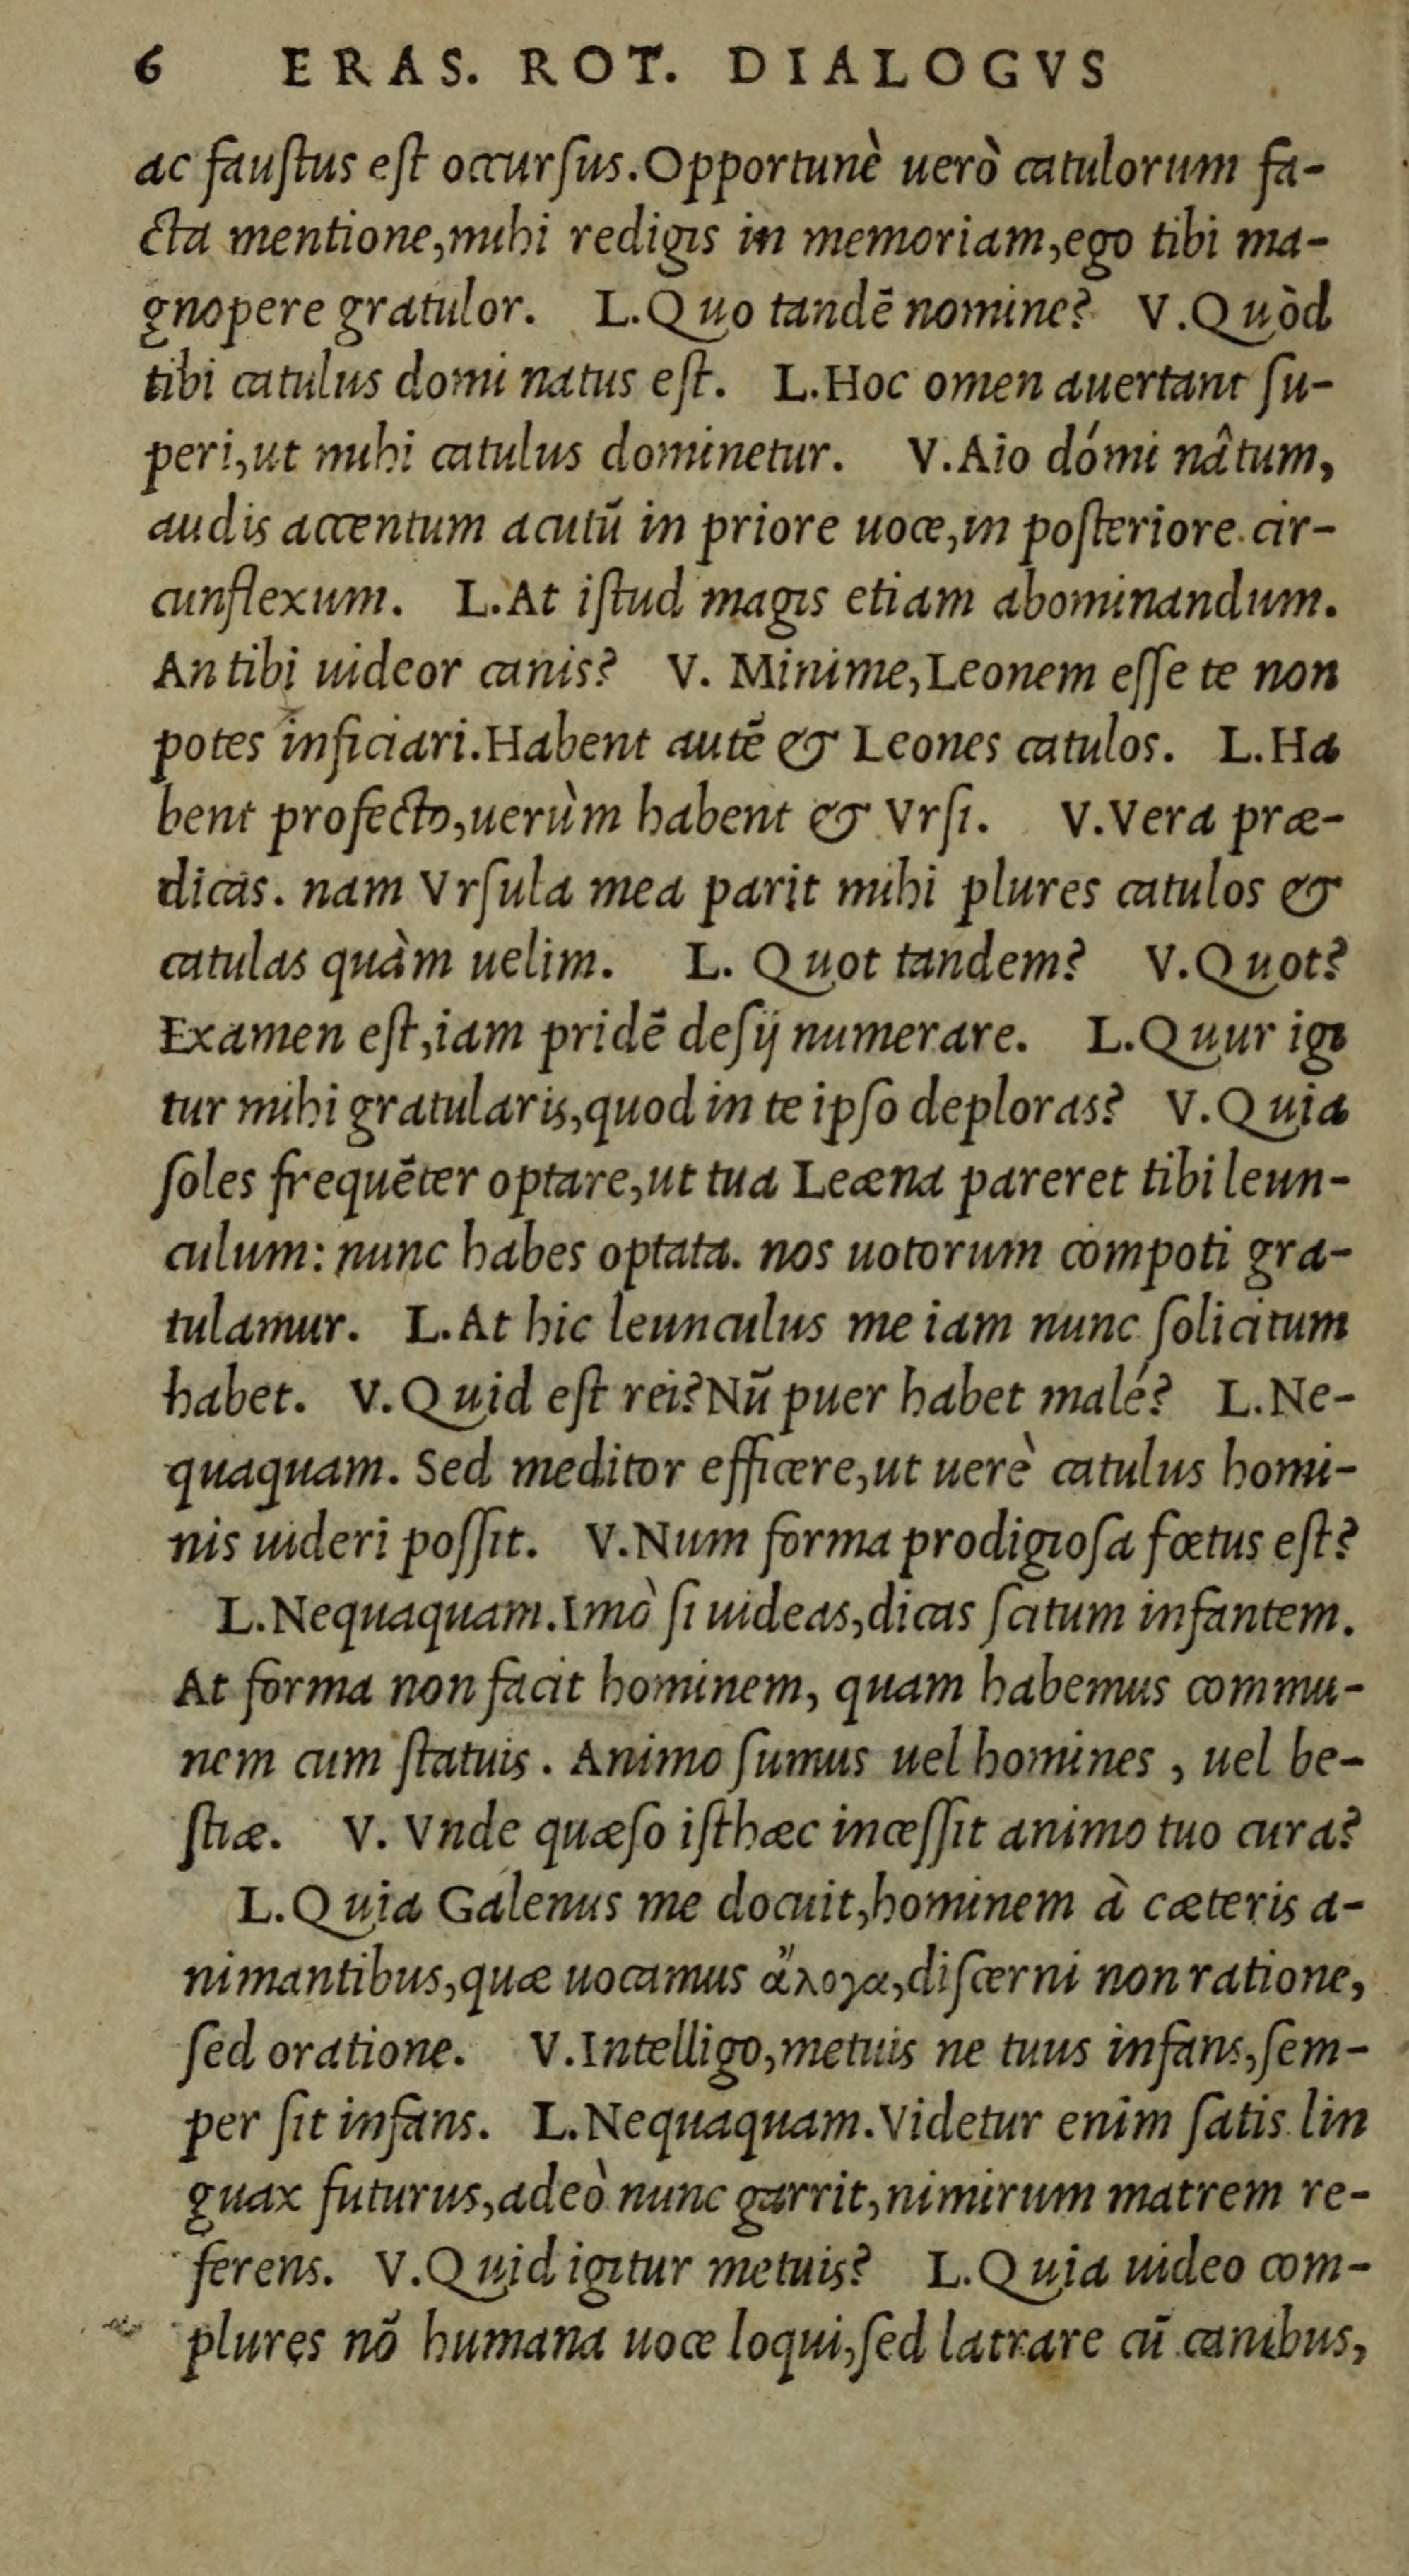 6 ERAS. ROT. DIALOGVS
ac fauſtus eſt occurſus. Opportunè uerò catulorum fa-
cta mentione, mihi redigis in memoriam, ego tibi ma-
gnopere gratulor. L. Quo tandē nomine? V. Quòd
tibi catulus domi natus eſt. L. Hoc omen auertant ſu-
peri, ut mihi catulus dominetur. V. Aio dómi nâtum,
audis accentum acutū in priore uoce, in poſteriore cir-
cunflexum. L. At iſtud magis etiam abominandum.
An tibi uideor canis? V. Minime, Leonem eſſe te non
potes inficiari. Habent autē & Leones catulos. L. Ha
bent profecto, uerùm habent & Vrſi. V. Vera præ-
dicas. nam Vrſula mea parit mihi plures catulos &
catulas quàm uelim. L. Quot tandem? V. Quot?
Examen eſt, iam pridē deſij numerare. L. Quur igi
tur mihi gratularis, quod in te ipſo deploras? V. Quia
ſoles frequēter optare, ut tua Leæna pareret tibi leun-
culum: nunc habes optata. nos uotorum compoti gra-
tulamur. L. At hic leunculus me iam nunc ſolicitum
habet. V. Quid eſt rei? Nū puer habet malé? L. Ne-
quaquam. Sed meditor efficere, ut uerè catulus homi-
nis uideri poſſit. V. Num forma prodigioſa fœtus eſt?
L. Nequaquam. Imò ſi uideas, dicas ſcitum infantem.
At forma non facit hominem, quam habemus commu-
nem cum ſtatuis. Animo ſumus uel homines, uel be-
ſtiæ. V. Vnde quæſo iſthæc inceſſit animo tuo cura?
L. Quia Galenus me docuit, hominem à cæteris a-
nimantibus, quæ uocamus ἄλογα, diſcerni non ratione,
ſed oratione. V. Intelligo, metuis ne tuus infans, ſem-
per ſit infans. L. Nequaquam. Videtur enim ſatis lin
guax futurus, adeò nunc garrit, nimirum matrem re-
ferens. V. Quid igitur metuis? L. Quia uideo com-
plures nō humana uoce loqui, ſed latrare cū canibus,